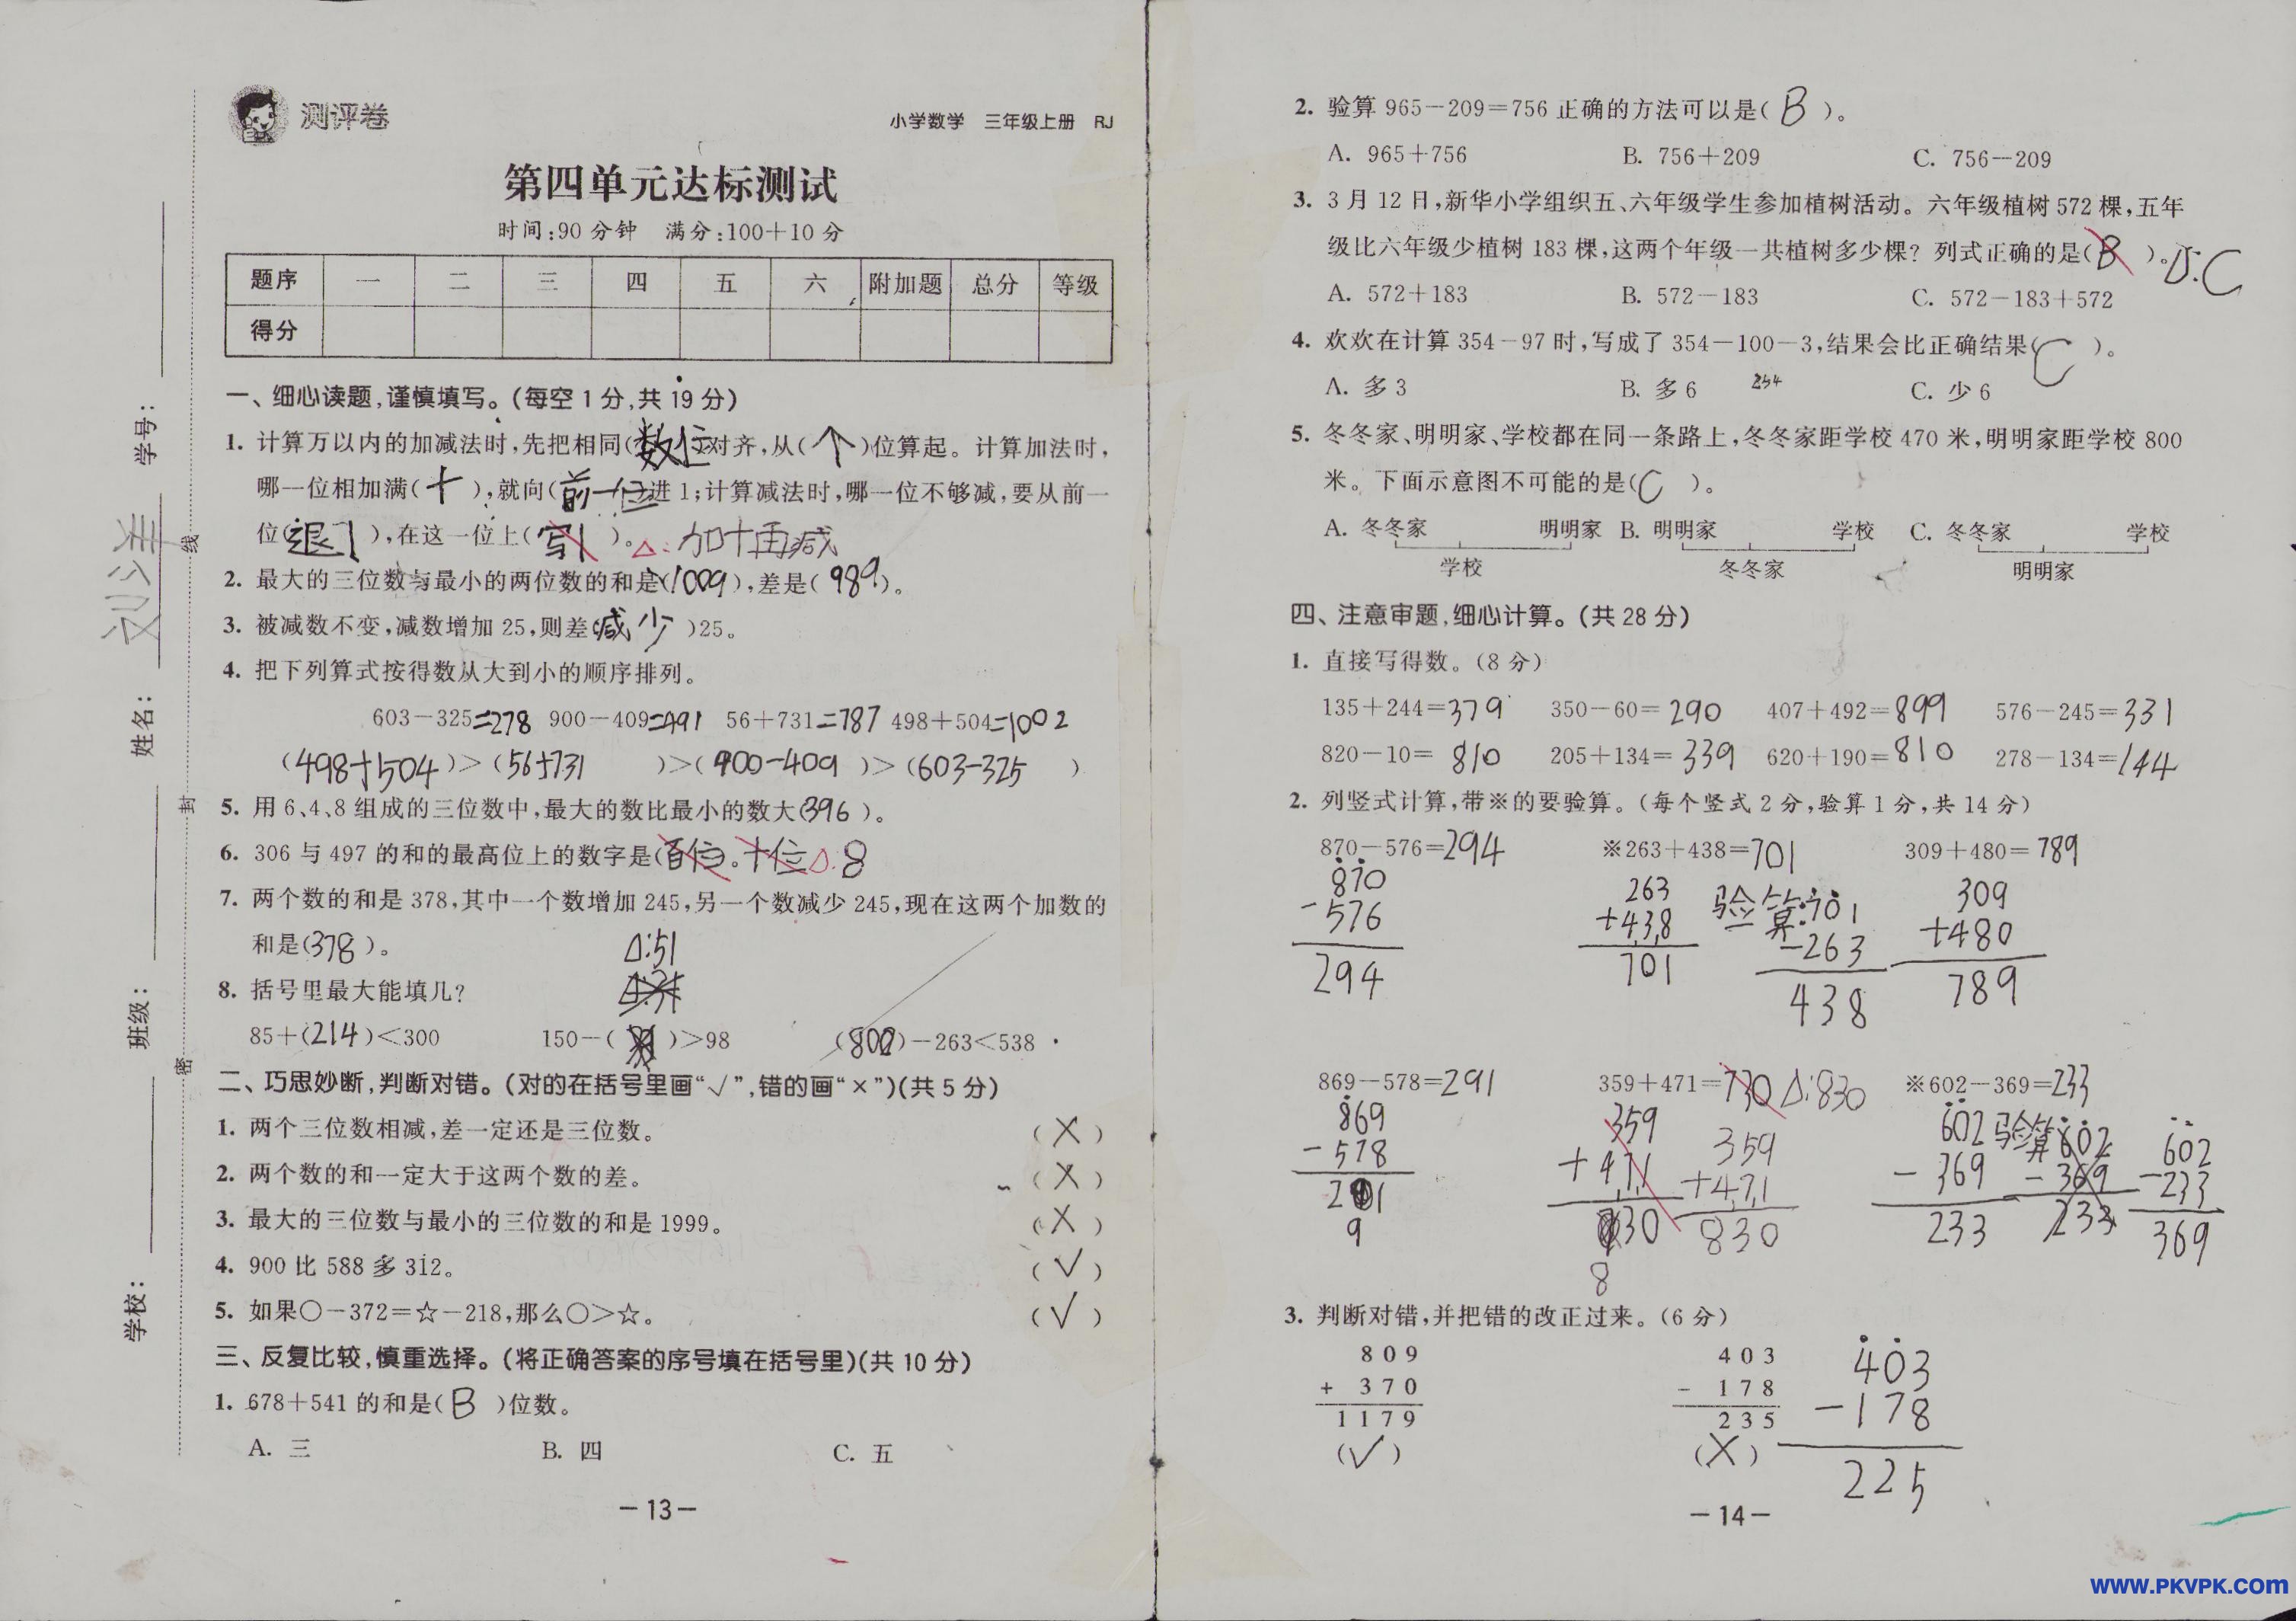 测评卷
小学数学 三年级上册 RJ
第四单元达标测试
时间:90分钟 满分:100+10分
题序 一 二 三 四 五 六 附加题 总分 等级
得分
学校: 班级: 姓名: 学号:
密 封 线
一、细心读题,谨慎填写。(每空1分,共19分)
1. 计算万以内的加减法时,先把相同(数位)对齐,从(个)位算起。计算加法时,
哪一位相加满(十),就向(前一位)进1;计算减法时,哪一位不够减,要从前一
位(退1),在这一位上(写1)。△:加十再减
2. 最大的三位数与最小的两位数的和是(1009),差是(989)。
3. 被减数不变,减数增加25,则差(减少)25。
4. 把下列算式按得数从大到小的顺序排列。
603-325=278 900-409=491 56+731=787 498+504=1002
(498+504)>(56+731)>(900-409)>(603-325)
5. 用6、4、8组成的三位数中,最大的数比最小的数大(396)。
6. 306与497的和的最高位上的数字是(百位。十位△:8
7. 两个数的和是378,其中一个数增加245,另一个数减少245,现在这两个加数的
和是(378)。
△:51
8. 括号里最大能填几?
85+(214)<300 150-( )>98 (800)-263<538
二、巧思妙断,判断对错。(对的在括号里画“√”,错的画“×”)(共5分)
1. 两个三位数相减,差一定还是三位数。 (×)
2. 两个数的和一定大于这两个数的差。 (×)
3. 最大的三位数与最小的三位数的和是1999。 (×)
4. 900比588多312。 (√)
5. 如果○-372=☆-218,那么○>☆。 (√)
三、反复比较,慎重选择。(将正确答案的序号填在括号里)(共10分)
1. 678+541的和是(B)位数。
A. 三 B. 四 C. 五
-13-
2. 验算965-209=756正确的方法可以是(B)。
A. 965+756 B. 756+209 C. 756-209
3. 3月12日,新华小学组织五、六年级学生参加植树活动。六年级植树572棵,五年
级比六年级少植树183棵,这两个年级一共植树多少棵? 列式正确的是(B)。△:C
A. 572+183 B. 572-183 C. 572-183+572
4. 欢欢在计算354-97时,写成了354-100-3,结果会比正确结果(C)。
A. 多3 B. 多6 254 C. 少6
5. 冬冬家、明明家、学校都在同一条路上,冬冬家距学校470米,明明家距学校800
米。下面示意图不可能的是(C)。
A. 冬冬家 明明家 B. 明明家 学校 C. 冬冬家 学校
学校 冬冬家 明明家
四、注意审题,细心计算。(共28分)
1. 直接写得数。(8分)
135+244=379 350-60=290 407+492=899 576-245=331
820-10=810 205+134=339 620+190=810 278-134=144
2. 列竖式计算,带※的要验算。(每个竖式2分,验算1分,共14分)
870-576=294 ※263+438=701 309+480=789
870 263 验算:701 309
-576 +438 -263 +480
294 701 438 789
869-578=291 359+471=730 △:830 ※602-369=233
869 359 359 602 验算 602 602
-578 +471 +471 -369 -369 -233
2 1 30 830 233 233 369
9 8
3. 判断对错,并把错的改正过来。(6分)
809 403 403
+ 370 - 178 -178
1179 235 225
(√) (×)
-14-
www.PKVPK.com